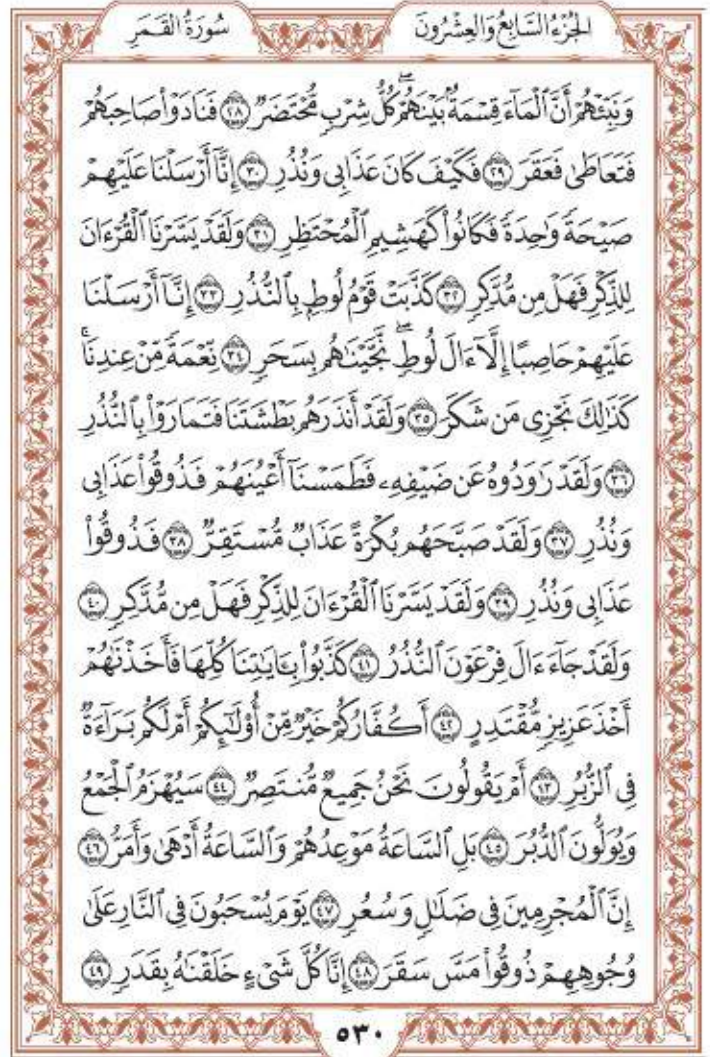 سُورَةُ القَمَر
الجُزْءُ السَّابِعُ وَالعِشْرُونَ
وَنَبِّئْهُمْ أَنَّ ٱلْمَآءَ قِسْمَةٌۢ بَيْنَهُمْۖ كُلُّ شِرْبٍ مُّحْتَضَرٌ ٢٨ فَنَادَوْا۟ صَاحِبَهُمْ
فَتَعَاطَىٰ فَعَقَرَ ٢٩ فَكَيْفَ كَانَ عَذَابِى وَنُذُرِ ٣٠ إِنَّآ أَرْسَلْنَا عَلَيْهِمْ
صَيْحَةً وَٰحِدَةً فَكَانُوا۟ كَهَشِيمِ ٱلْمُحْتَظِرِ ٣١ وَلَقَدْ يَسَّرْنَا ٱلْقُرْءَانَ
لِلذِّكْرِ فَهَلْ مِن مُّدَّكِرٍ ٣٢ كَذَّبَتْ قَوْمُ لُوطٍۭ بِٱلنُّذُرِ ٣٣ إِنَّآ أَرْسَلْنَا
عَلَيْهِمْ حَاصِبًا إِلَّآ ءَالَ لُوطٍۖ نَّجَّيْنَٰهُم بِسَحَرٍ ٣٤ نِّعْمَةً مِّنْ عِندِنَاۚ
كَذَٰلِكَ نَجْزِى مَن شَكَرَ ٣٥ وَلَقَدْ أَنذَرَهُم بَطْشَتَنَا فَتَمَارَوْا۟ بِٱلنُّذُرِ
٣٦ وَلَقَدْ رَٰوَدُوهُ عَن ضَيْفِهِۦ فَطَمَسْنَآ أَعْيُنَهُمْ فَذُوقُوا۟ عَذَابِى
وَنُذُرِ ٣٧ وَلَقَدْ صَبَّحَهُم بُكْرَةً عَذَابٌ مُّسْتَقِرٌّ ٣٨ فَذُوقُوا۟
عَذَابِى وَنُذُرِ ٣٩ وَلَقَدْ يَسَّرْنَا ٱلْقُرْءَانَ لِلذِّكْرِ فَهَلْ مِن مُّدَّكِرٍ ٤٠
وَلَقَدْ جَآءَ ءَالَ فِرْعَوْنَ ٱلنُّذُرُ ٤١ كَذَّبُوا۟ بِـَٔايَٰتِنَا كُلِّهَا فَأَخَذْنَٰهُمْ
أَخْذَ عَزِيزٍ مُّقْتَدِرٍ ٤٢ أَكُفَّارُكُمْ خَيْرٌ مِّنْ أُو۟لَٰٓئِكُمْ أَمْ لَكُم بَرَآءَةٌ
فِى ٱلزُّبُرِ ٤٣ أَمْ يَقُولُونَ نَحْنُ جَمِيعٌ مُّنتَصِرٌ ٤٤ سَيُهْزَمُ ٱلْجَمْعُ
وَيُوَلُّونَ ٱلدُّبُرَ ٤٥ بَلِ ٱلسَّاعَةُ مَوْعِدُهُمْ وَٱلسَّاعَةُ أَدْهَىٰ وَأَمَرُّ ٤٦
إِنَّ ٱلْمُجْرِمِينَ فِى ضَلَٰلٍ وَسُعُرٍ ٤٧ يَوْمَ يُسْحَبُونَ فِى ٱلنَّارِ عَلَىٰ
وُجُوهِهِمْ ذُوقُوا۟ مَسَّ سَقَرَ ٤٨ إِنَّا كُلَّ شَىْءٍ خَلَقْنَٰهُ بِقَدَرٍ ٤٩
٥٣٠